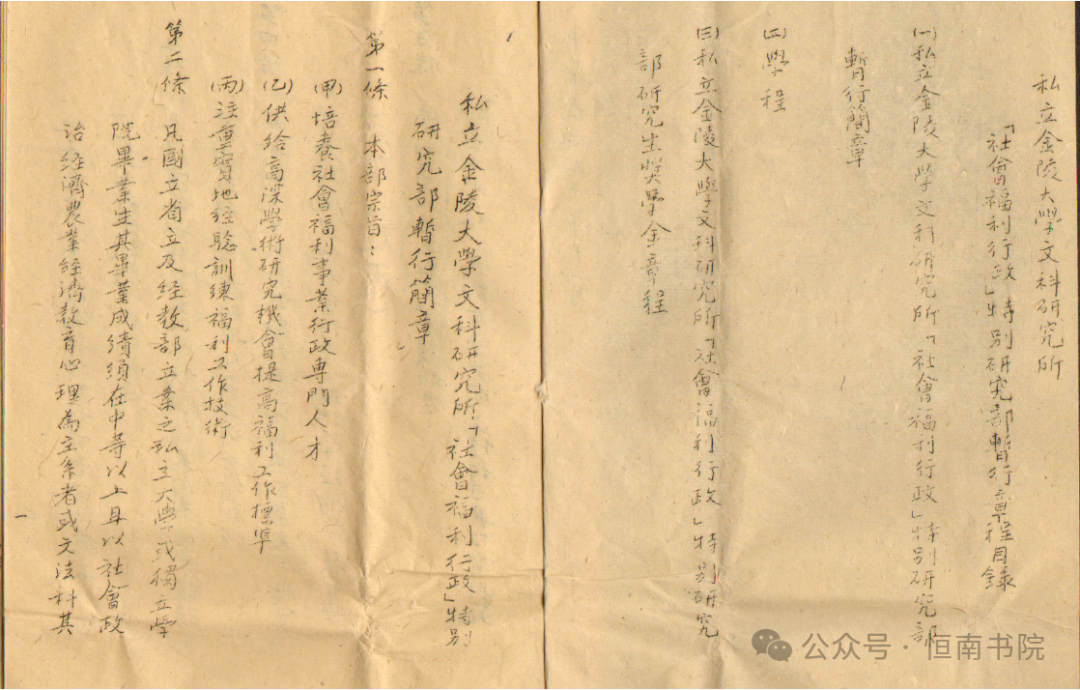 私立金陵大學文科研究所
「社會福利行政」特別研究部暫行章程目錄
(一)私立金陵大學文科研究所「社會福利行政」特別研究部
暫行簡章
(二)學程
(三)私立金陵大學文科研究所「社會福利行政」特別研究
部研究生獎學金章程
私立金陵大學文科研究所「社會福利行政」特別
研究部暫行簡章
第一條 本部宗旨：
(甲)培養社會福利事業行政專門人才
(乙)供給高深學術研究機會提高福利工作標準
(丙)注重實地經驗訓練福利工作技術
第二條 凡國立省立及經教部立案之私立大學或獨立學
院畢業生其畢業成績須在中等以上且以社會政
治經濟農業經濟教育心理為主系者或文法科其
一
公众号·恒南书院